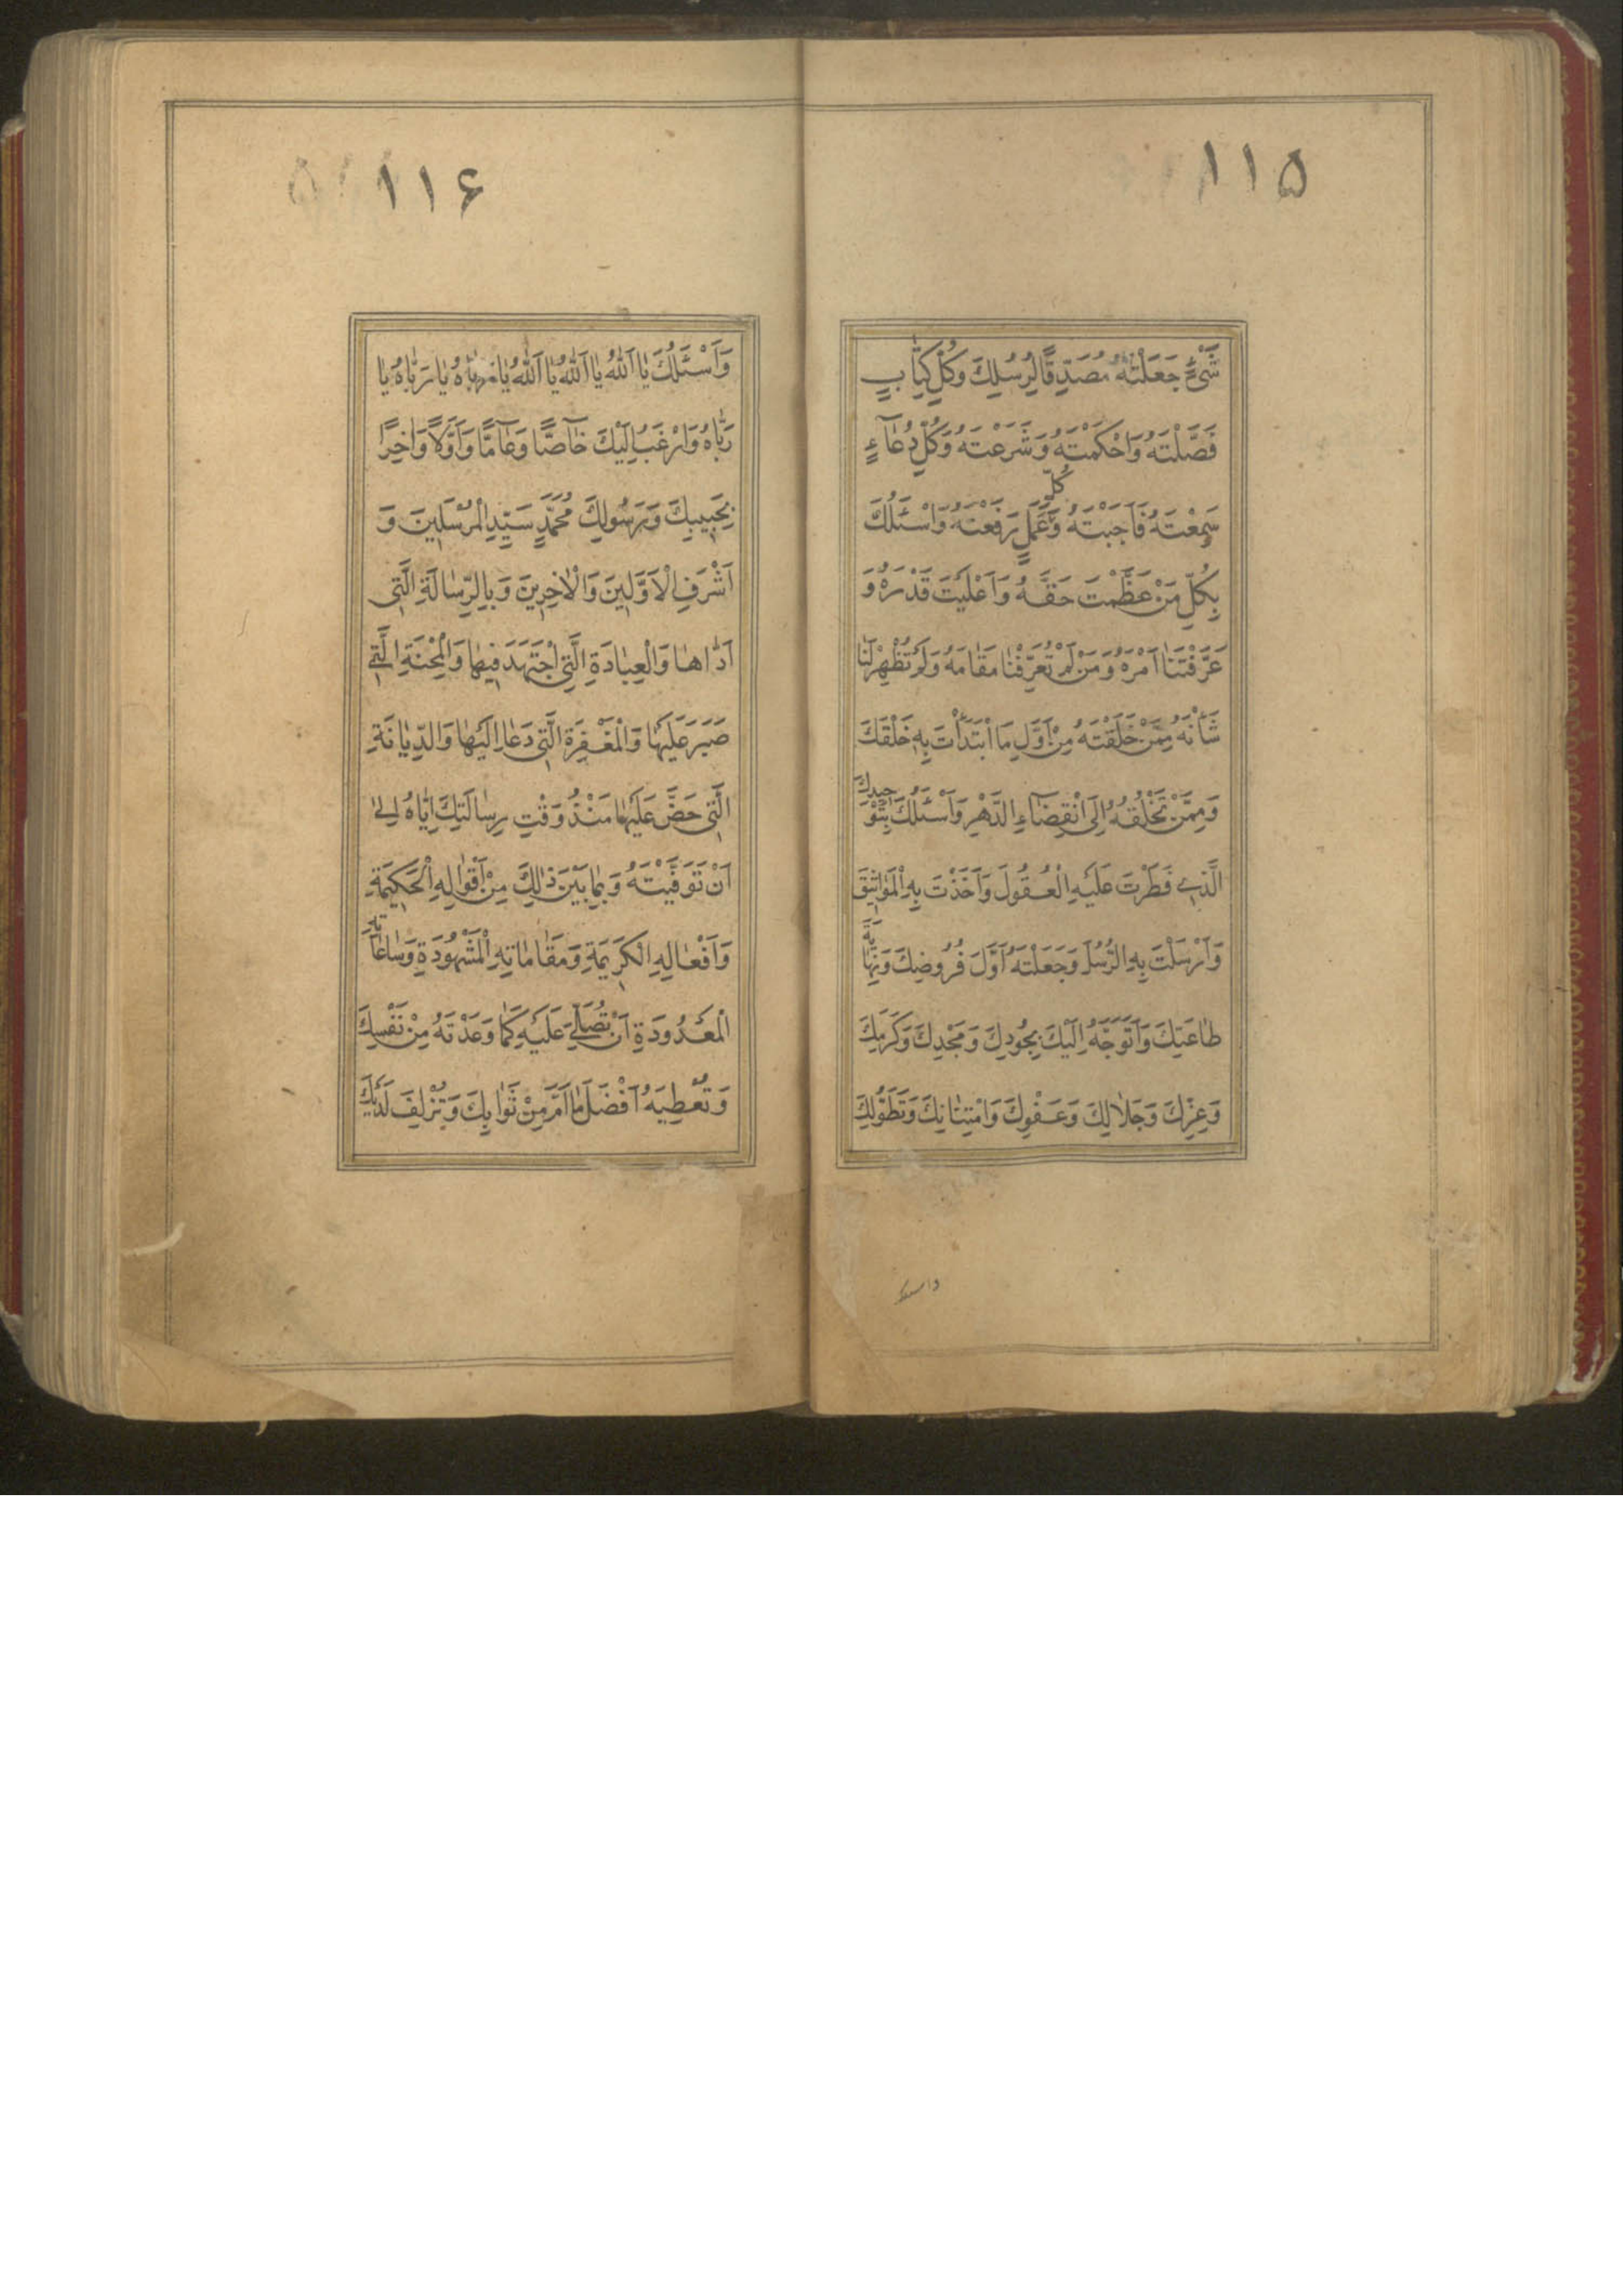 ۱۱۵
شَیْءٍ جَعَلْتَهُ مُصَدِّقًا لِرُسُلِكَ وَكُلِّ كِتَابٍ
فَصَّلْتَهُ وَاَحْكَمْتَهُ وَشَرَعْتَهُ وَكُلِّ دُعَآءٍ
سَمِعْتَهُ فَاَجَبْتَهُ وَكُلِّ عَمَلٍ رَفَعْتَهُ وَاَسْئَلُكَ
بِكُلِّ مَنْ عَظَّمْتَ حَقَّهُ وَاَعْلَيْتَ قَدْرَهُ وَ
عَرَّفْتَنَا اَمْرَهُ وَمَنْ لَمْ تُعَرِّفْنَا مَقَامَهُ وَلَمْ تُظْهِرْ لَنَا
شَأْنَهُ مِمَّنْ خَلَقْتَهُ مِنْ اَوَّلِ مَا ابْتَدَأْتَ بِهِ خَلْقَكَ
وَمِمَّنْ تَخْلُقُهُ اِلَى انْقِضَآءِ الدَّهْرِ وَاَسْئَلُكَ بِتَوْحِيدِكَ
الَّذِی فَطَرْتَ عَلَيْهِ الْعُقُولَ وَاَخَذْتَ بِهِ الْمَوَاثِيقَ
وَاَرْسَلْتَ بِهِ الرُّسُلَ وَجَعَلْتَهُ اَوَّلَ فُرُوضِكَ وَنِهَايَةَ
طَاعَتِكَ وَاَتَوَجَّهُ اِلَيْكَ بِجُودِكَ وَمَجْدِكَ وَكَرَمِكَ
وَعِزِّكَ وَجَلَالِكَ وَعَفْوِكَ وَامْتِنَانِكَ وَتَطَوُّلِكَ
۱۱۶
وَاَسْئَلُكَ يَا اَللّٰهُ يَا اَللّٰهُ يَا اَللّٰهُ يَا رَبَّاهُ يَا رَبَّاهُ يَا
رَبَّاهُ وَاَرْغَبُ اِلَيْكَ خَآصًّا وَعَآمًّا وَاَوَّلًا وَاٰخِرًا
بِحَبِيبِكَ وَرَسُولِكَ مُحَمَّدٍ سَيِّدِ الْمُرْسَلِينَ وَ
اَشْرَفِ الْاَوَّلِينَ وَالْاٰخِرِينَ وَبِالرِّسَالَةِ الَّتِی
اَدَّاهَا وَالْعِبَادَةِ الَّتِی اجْتَهَدَ فِيهَا وَالْمِحْنَةِ الَّتِی
صَبَرَ عَلَيْهَا وَالْمَغْفِرَةِ الَّتِی دَعَا اِلَيْهَا وَالدِّيَانَةِ
الَّتِی حَضَّ عَلَيْهَا مُنْذُ وَقْتِ رِسَالَتِكَ اِيَّاهُ اِلٰی
اَنْ تَوَفَّيْتَهُ وَبِمَا بَيْنَ ذٰلِكَ مِنْ اَقْوَالِهِ الْحَكِيمَةِ
وَاَفْعَالِهِ الْكَرِيمَةِ وَمَقَامَاتِهِ الْمَشْهُودَةِ وَسَاعَاتِهِ
الْمَعْدُودَةِ اَنْ تُصَلِّیَ عَلَيْهِ كَمَا وَعَدْتَهُ مِنْ نَفْسِكَ
وَتُعْطِيَهُ اَفْضَلَ مَا اَمَّلَ مِنْ ثَوَابِكَ وَتُزْلِفَ لَدَيْكَ